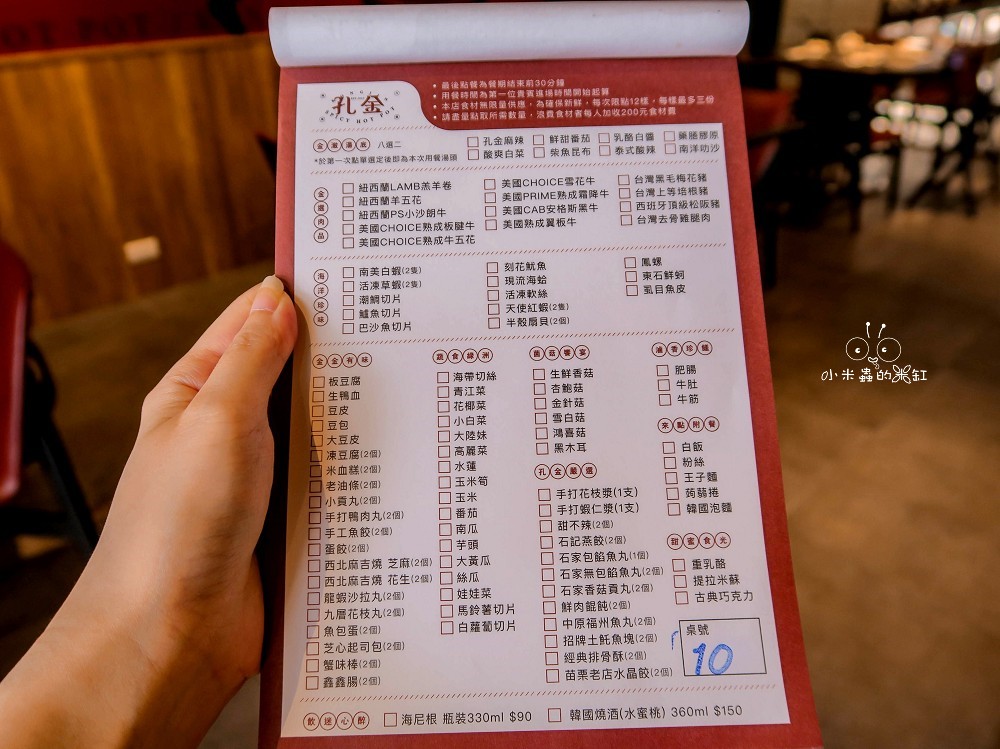 孔金
SPICY HOT POT
• 最後點餐為餐期結束前30分鐘
• 用餐時間為第一位貴賓進場時間開始起算
• 本店食材無限量供應，為確保新鮮，每次限點12樣，每樣最多三份
• 請盡量點取所需數量，浪費食材者每人加收200元食材費
金灝湯底 八選二
*於第一次點單選定後即為本次用餐湯頭
孔金麻辣 鮮甜番茄 乳酪白醬 藥膳膠原
酸爽白菜 柴魚昆布 泰式酸辣 南洋叻沙
金選肉品
紐西蘭LAMB羔羊卷
紐西蘭羊五花
紐西蘭PS小沙朗牛
美國CHOICE熟成板腱牛
美國CHOICE熟成牛五花
美國CHOICE雪花牛
美國PRIME熟成霜降牛
美國CAB安格斯黑牛
美國熟成翼板牛
台灣黑毛梅花豬
台灣上等培根豬
西班牙頂級松阪豬
台灣去骨雞腿肉
海洋珍味
南美白蝦(2隻)
活凍草蝦(2隻)
潮鯛切片
鱸魚切片
巴沙魚切片
刻花魷魚
現流海蛤
活凍軟絲
天使紅蝦(2隻)
半殼扇貝(2個)
鳳螺
東石鮮蚵
虱目魚皮
金金有味
板豆腐
生鴨血
豆皮
豆包
大豆皮
凍豆腐(2個)
米血糕(2個)
老油條(2個)
小貢丸(2個)
手打鴨肉丸(2個)
手工魚餃(2個)
蛋餃(2個)
西北麻吉燒 芝麻(2個)
西北麻吉燒 花生(2個)
龍蝦沙拉丸(2個)
九層花枝丸(2個)
魚包蛋(2個)
芝心起司包(2個)
蟹味棒(2個)
鑫鑫腸(2個)
蔬食綠洲
海帶切絲
青江菜
花椰菜
小白菜
大陸妹
高麗菜
水蓮
玉米筍
玉米
番茄
南瓜
芋頭
大黃瓜
絲瓜
娃娃菜
馬鈴薯切片
白蘿蔔切片
菌菇饗宴
生鮮香菇
杏鮑菇
金針菇
雪白菇
鴻喜菇
黑木耳
孔金嚴選
手打花枝漿(1支)
手打蝦仁漿(1支)
甜不辣(2個)
石記燕餃(2個)
石家包餡魚丸(1個)
石家無包餡魚丸(2個)
石家香菇貢丸(2個)
鮮肉餛飩(2個)
中原福州魚丸(2個)
招牌土魠魚塊(2個)
經典排骨酥(2個)
苗栗老店水晶餃(2個)
滷香珍饈
肥腸
牛肚
牛筋
來點附餐
白飯
粉絲
王子麵
蒟蒻捲
韓國泡麵
甜蜜食光
重乳酪
提拉米蘇
古典巧克力
桌號
10
飲迷心醉 海尼根 瓶裝330ml $90 韓國燒酒(水蜜桃) 360ml $150
小米蟲的米缸